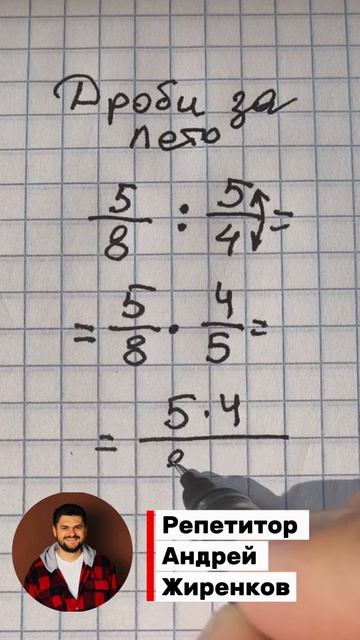 Дроби за
лето
5/8 : 5/4 =
= 5/8 · 4/5 =
= 5·4/8
Репетитор
Андрей
Жиренков